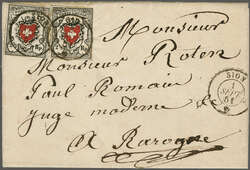 Monsieur
Monsieur Roten
Paul Romain
juge moderne &
a Rarogne
SION
51